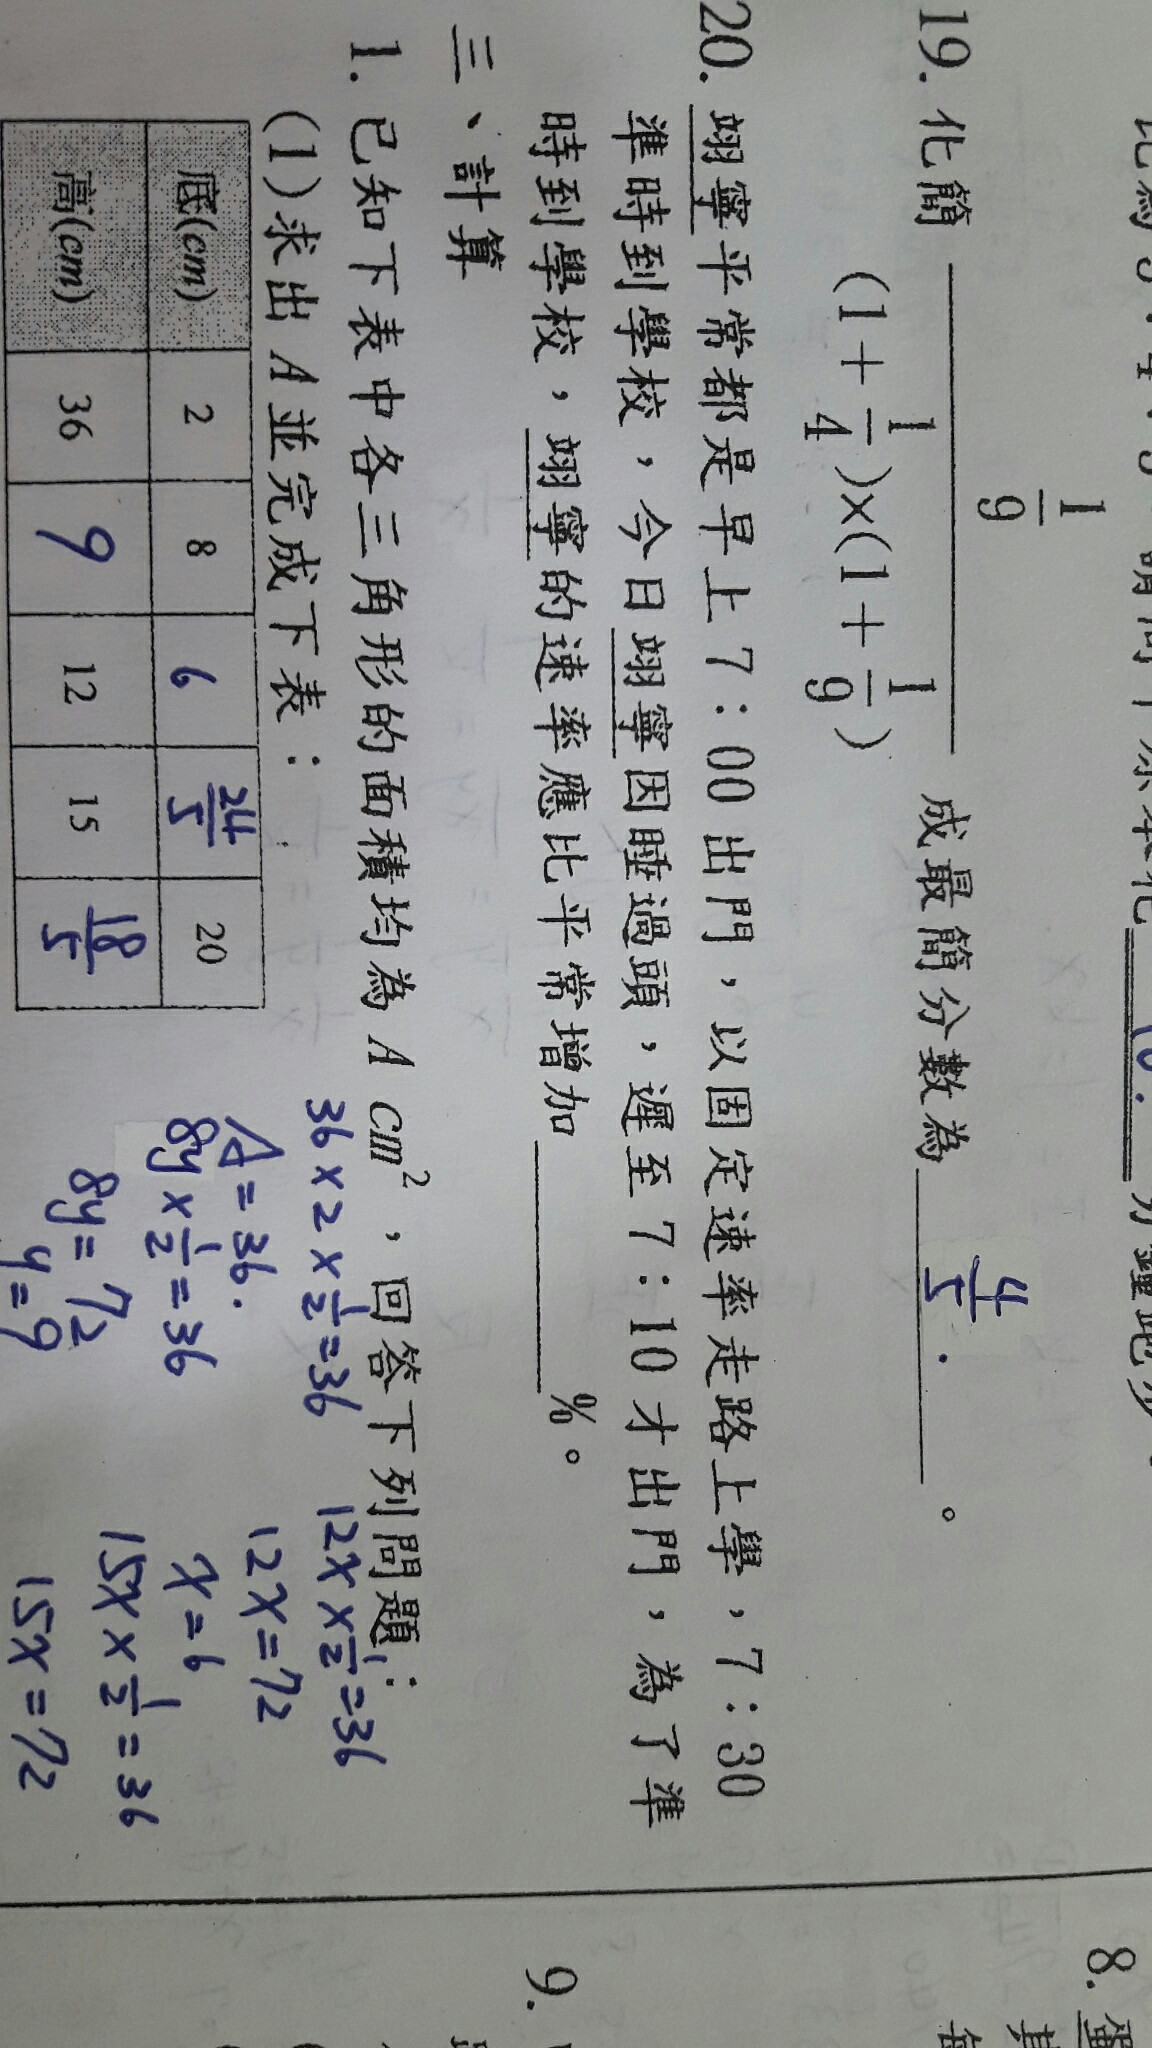 19. 化簡 \frac{\frac{1}{9}}{(1+\frac{1}{4})×(1+\frac{1}{9})} 成最簡分數為 \frac{4}{5}. 。
20. 翊寧平常都是早上7:00出門，以固定速率走路上學，7:30
準時到學校，今日翊寧因睡過頭，遲至7:10才出門，為了準
時到學校，翊寧的速率應比平常增加 %。
三、計算
1. 已知下表中各三角形的面積均為 A cm²，回答下列問題：
(1)求出 A 並完成下表：
底(cm) 2 8 6 \frac{24}{5} 20
高(cm) 36 9 12 15 \frac{18}{5}
36×2×\frac{1}{2}=36
A=36.
8y×\frac{1}{2}=36
8y=72
y=9
12x×\frac{1}{2}=36
12x=72
x=6
15x×\frac{1}{2}=36
15x=72
8.
9.